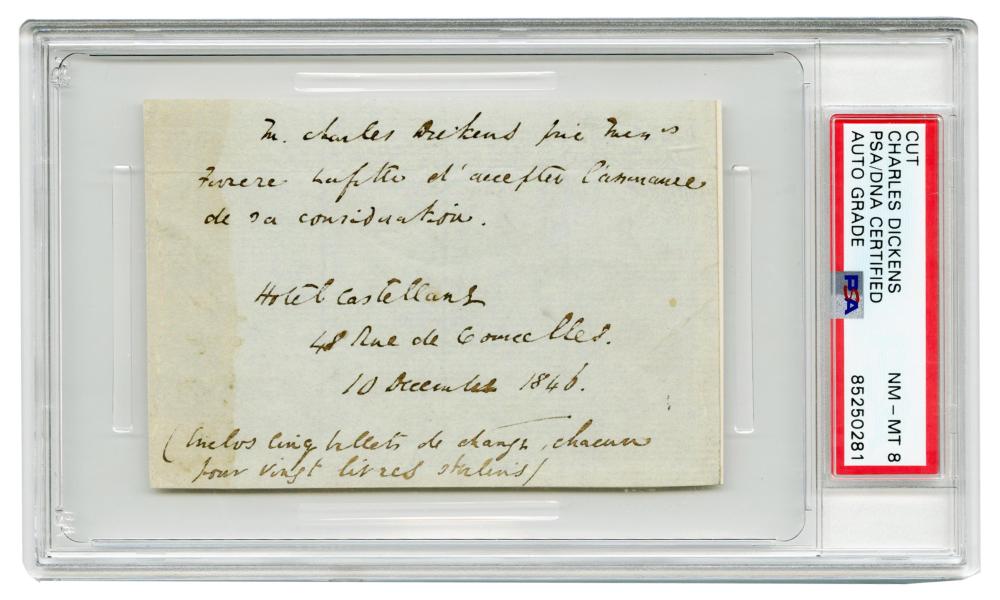 M. Charles Dickens prie Mess rs
Ferrere Lafitte d'accepter l'assurance
de sa consideration.
Hotel Castellane
48 Rue de Courcelles.
10 December 1846.
(Inclos cinq billets de change, chacun
pour vingt livres sterlins)
CUT
CHARLES DICKENS
PSA/DNA CERTIFIED
AUTO GRADE
NM – MT 8
85250281
PSA